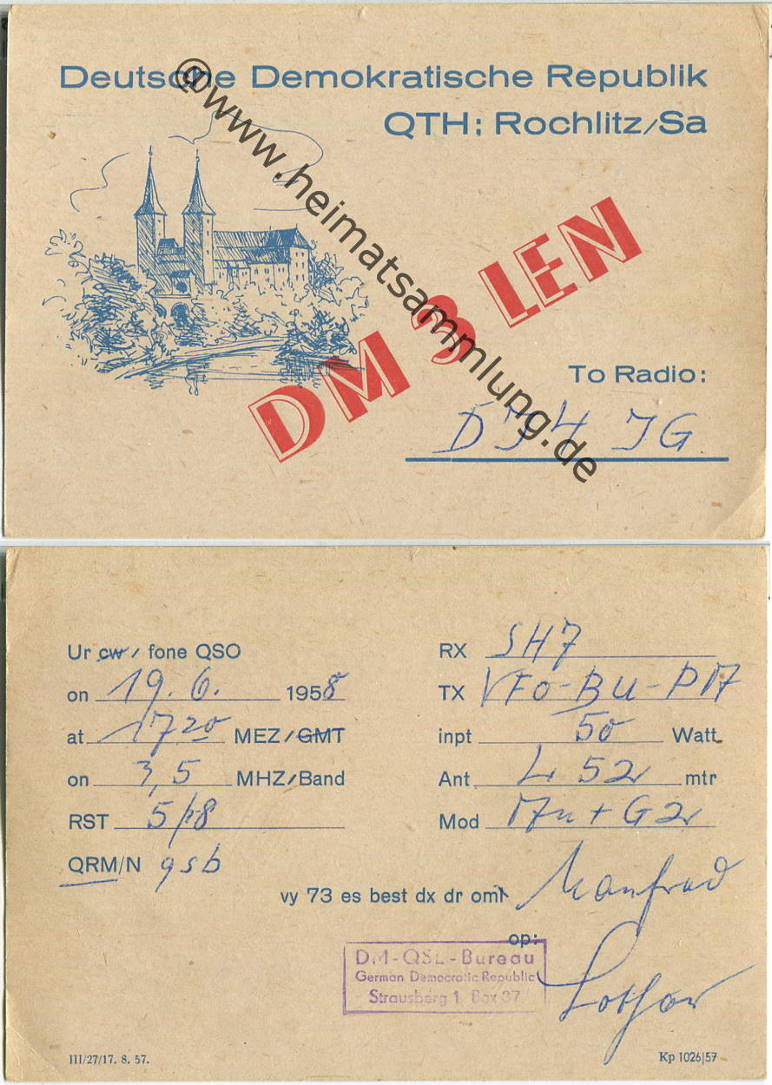 Deutsche Demokratische Republik
QTH: Rochlitz/Sa
@www.heimatsammlung.de
DM 3 LEN
To Radio:
DJ4 JG
Ur cw / fone QSO
on 19. 6. 1958
at 17 20 MEZ/GMT
on 3,5 MHZ/Band
RST 5/8
QRM/N qsb
RX SH7
TX VFO-BU-PA
inpt 50 Watt
Ant L 52 mtr
Mod + G2
vy 73 es best dx dr om Manfred
op:
Lothar
DM-QSL-Bureau
German Democratic Republic
Strausberg 1 Box 37
III/27/17. 8. 57.
Kp 1026|57